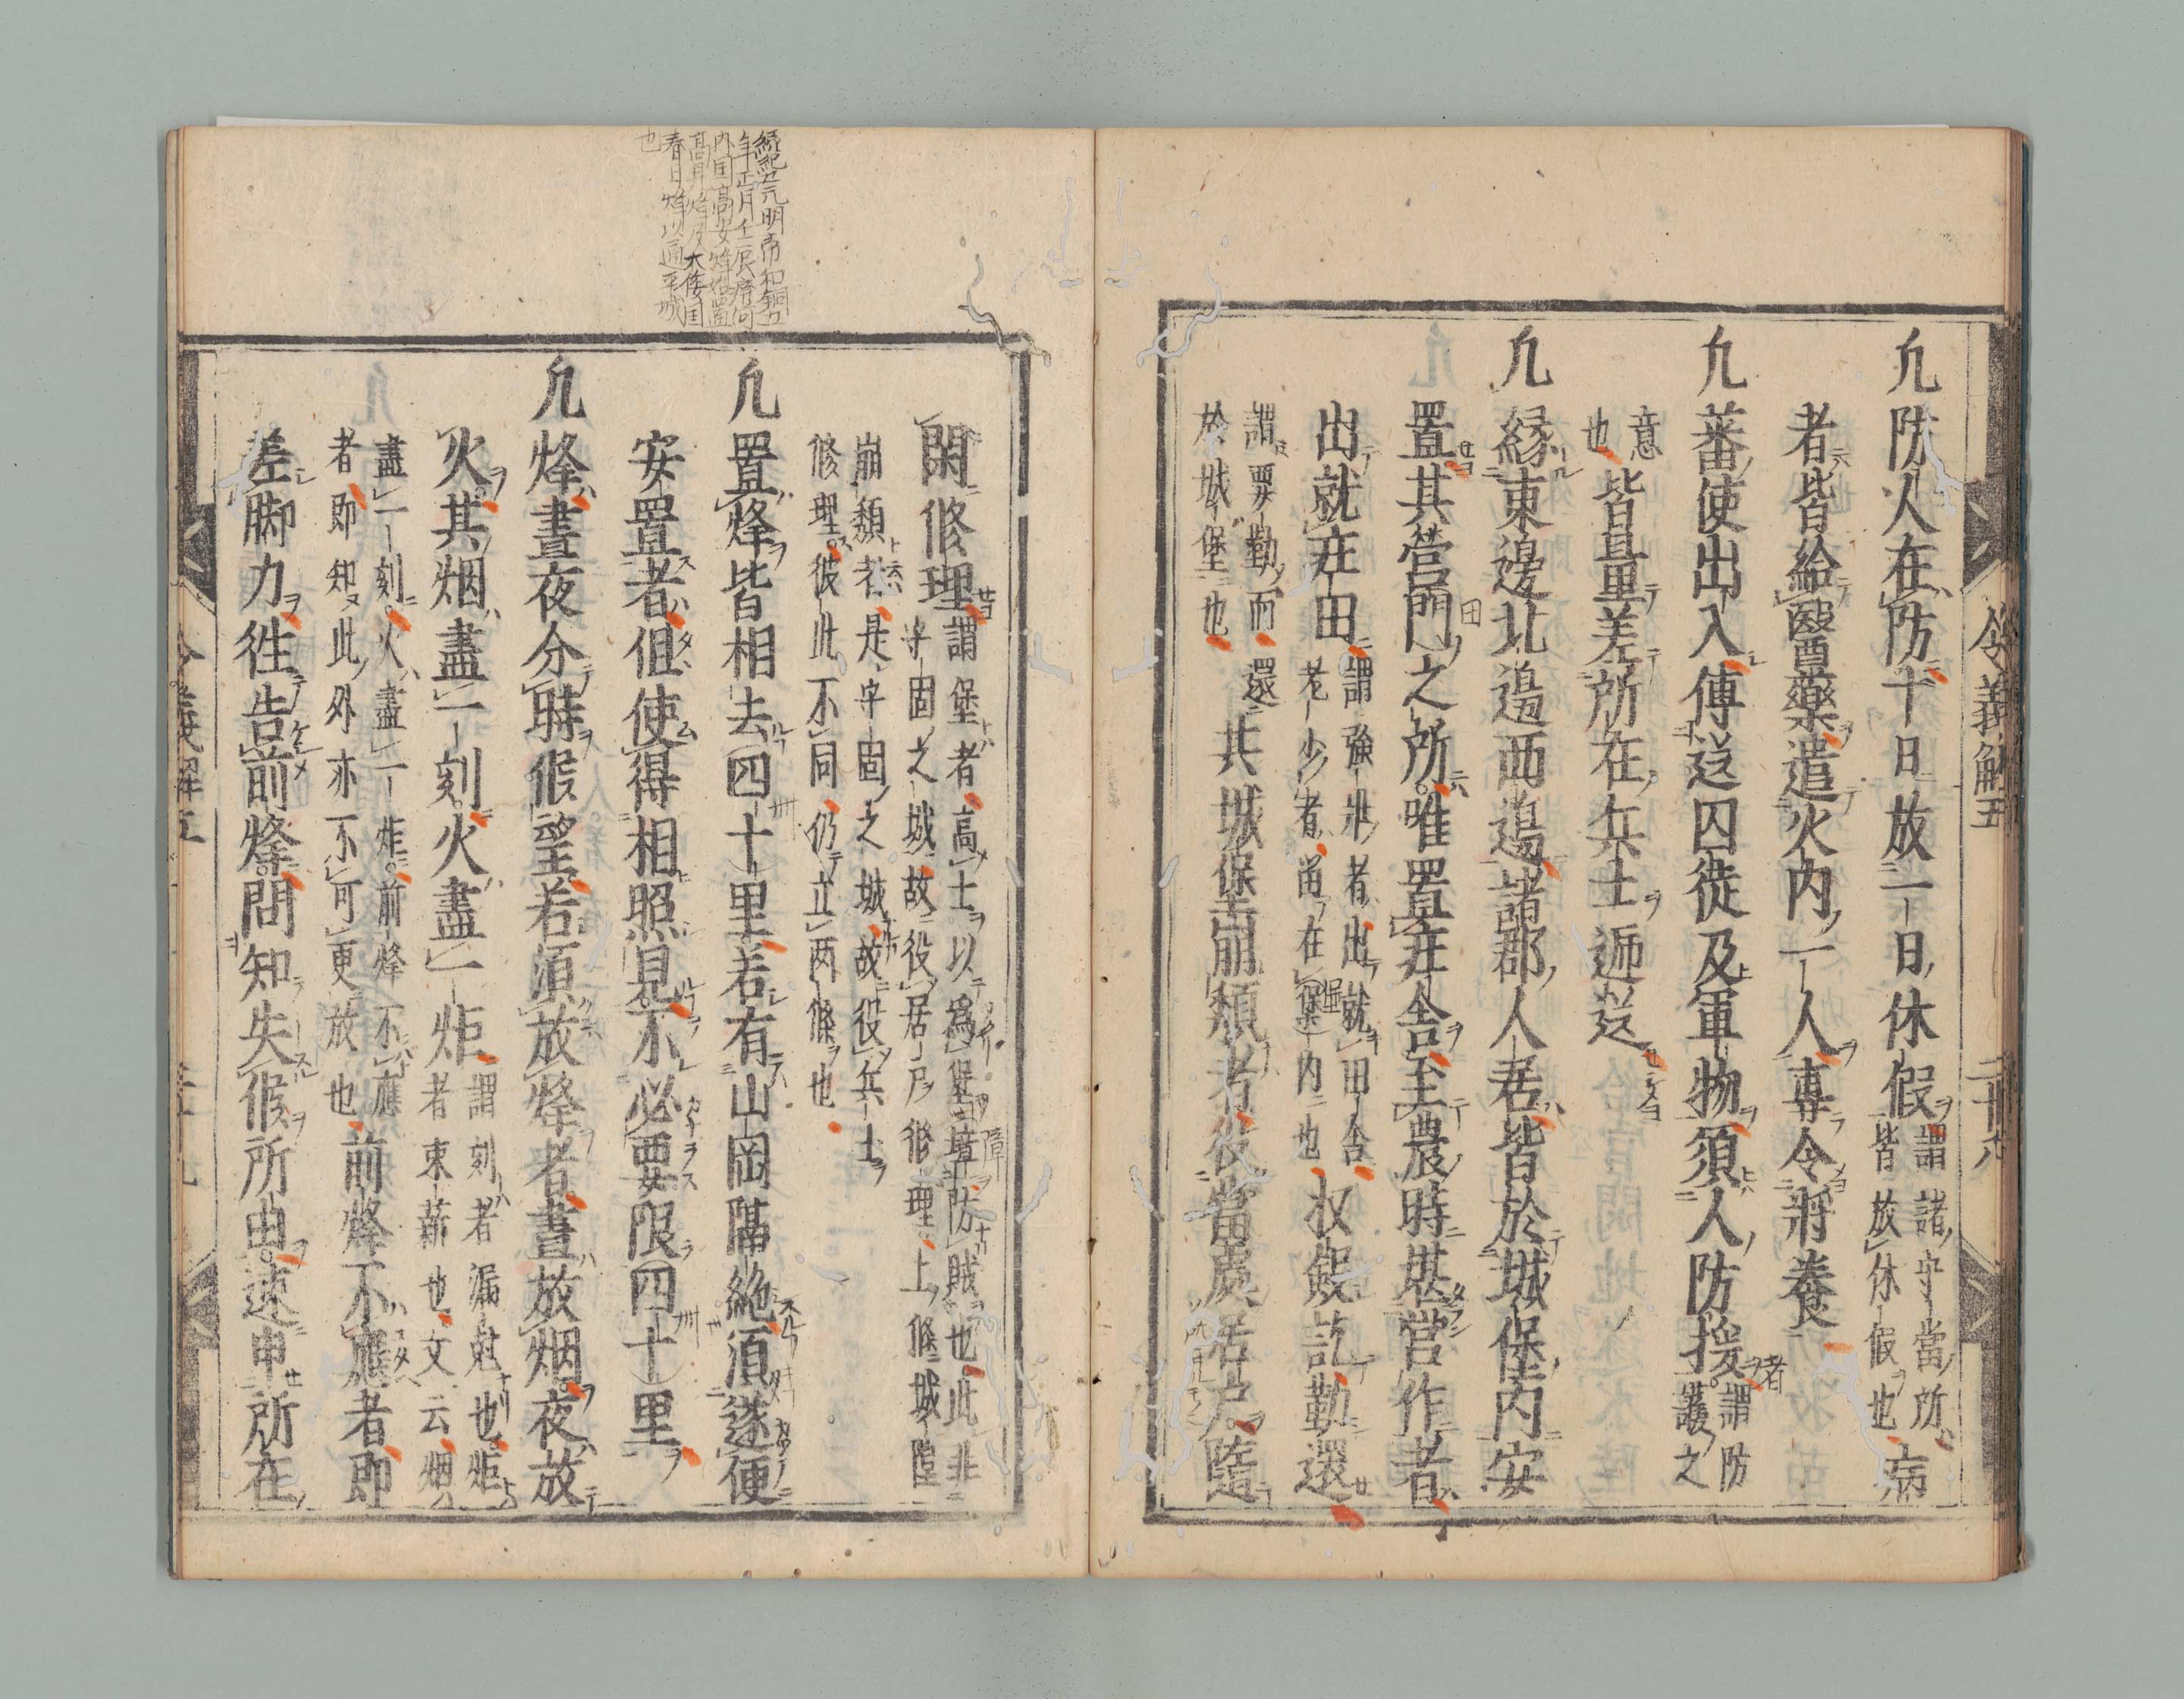 凢防人在防十日放一日休假謂諸守當所
皆放休假也病
者皆給醫藥遣火内一人專令將養
凢蕃使出入傳送囚徒及軍物須人防援謂防
護之
意
也皆量差所在兵士逓送
凢縁東邊北邉西邉諸郡人居皆於城堡内安
置其營門之所唯置庄舎至農時堪営作者
出就庄田謂強壯者出就田舎
老少者留在堡内也収斂訖勒還
謂要勒而還
於城堡也其城堡崩頽者役當處居戸隨
閑修理謂堡者高士以爲堡障防賊也此非
守固之城故役居戸修理上條城隍
崩頽者是守固之城故役兵士
修理彼此不同仍立两條也
凢置烽皆相去四十里若有山岡隔絶湏遂便
安置者但使得相照見不必要限四十里
凢烽晝夜分時假望若湏放烽者晝放烟夜放
火其烟盡一刻火盡一炬謂刻者漏尅也炬
者束薪也文云烟
盡一刻火盡一炬前烽不應
者即知此外亦不可更放也前烽不應者即
差脚力往告前烽問知失候所由速申所在
令義解五
續紀五元明帝和銅五
年正月壬辰廃河
内国高安烽始置
髙見烽及大倭国
春日烽以通平城
也